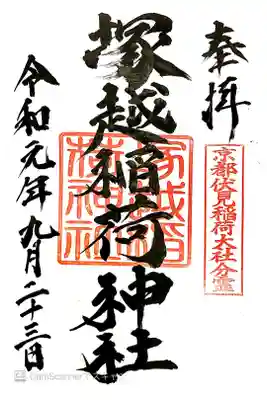 奉拝
京都伏見稲荷大社分霊
塚越稲荷神社
塚越稲
荷神社
令和元年九月二十三日
CamScanner